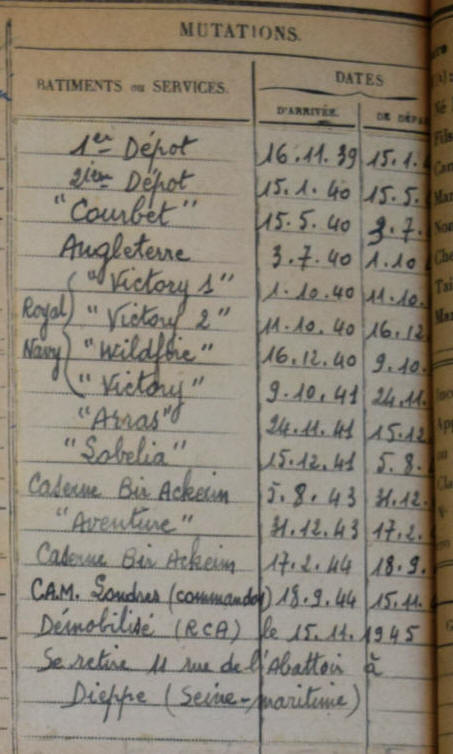 MUTATIONS.
BATIMENTS ou SERVICES.
DATES
D'ARRIVÉE.
DE DÉPA
1er Dépot 16.11.39 15.1.
2ièm Dépot 15.1.40 15.5.
"Courbet" 15.5.40 3.7.
Angleterre 3.7.40 1.10
"Victory 1" 1.10.40 11.10.
Royal "Victory 2" 11.10.40 16.12
Navy "Wildfire" 16.12.40 9.10.
"Victory" 9.10.41 24.11.
"Arras" 24.11.41 15.12
"Lobelia" 15.12.41 5.8.
Caserne Bir Ackeim 5.8.43 31.12.
"Aventure" 31.12.43 17.2.
Caserne Bir Ackeim 17.2.44 18.9.
C.A.M. Londres (commandos) 18.9.44 15.11.
Démobilisé (RCA) le 15.11.1945
Se retire 11 rue de l'Abattoir à
Dieppe (Seine-maritime)